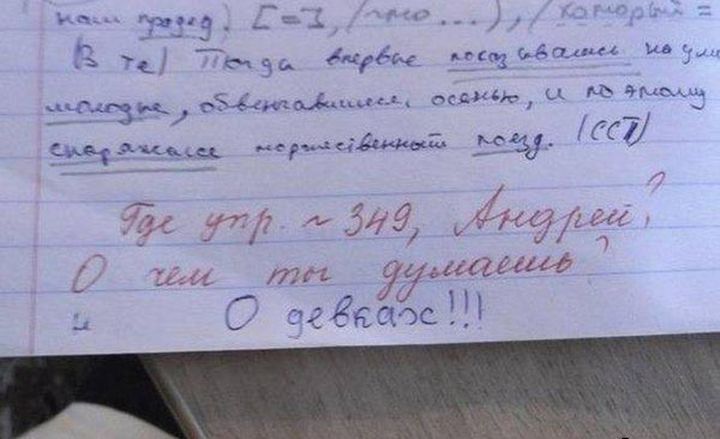 наш прадед. [=], (что...), (который =
(В те) Тогда впервые показывались на ули
молодые, обвенчавшиеся осенью, и по этому
снаряжался торжественный поезд. (ССП)
Где упр. ~ 349, Андрей?
О чем ты думаешь?
О девках!!!